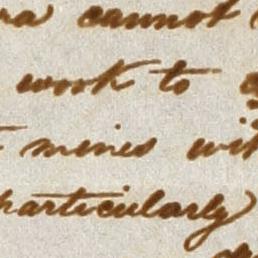 cannot
work to
mines
particularly